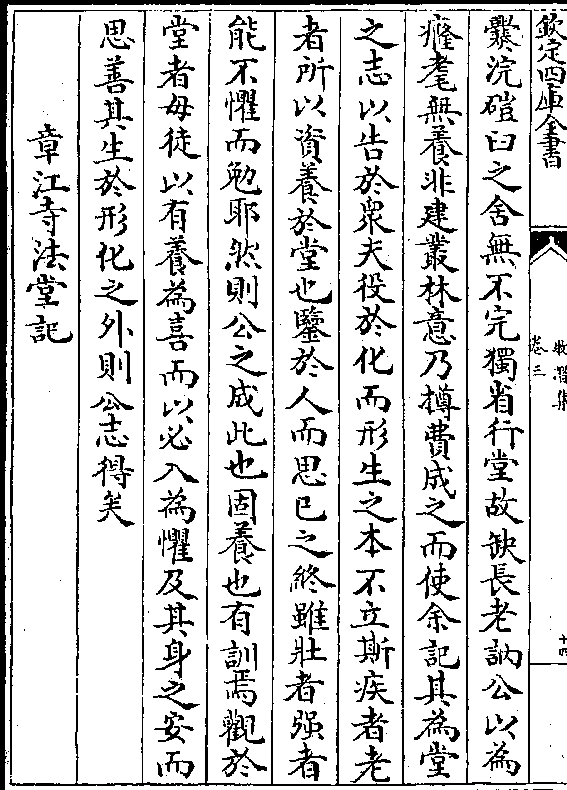 欽定四庫全書
牧潛集
卷三
十四
爨浣磑臼之舍無不完獨省行堂故缺長老訥公以為
癃耄無養非建叢林意乃撙費成之而使余記其為堂
之志以告於衆夫役於化而形生之本不立斯疾者老
者所以資養於堂也鑒於人而思已之終雖壯者强者
能不懼而勉耶然則公之成此也固養也有訓焉觀於
堂者毋徒以有養為喜而以必入為懼及其身之安而
思善其生於形化之外則公志得矣
章江寺法堂記